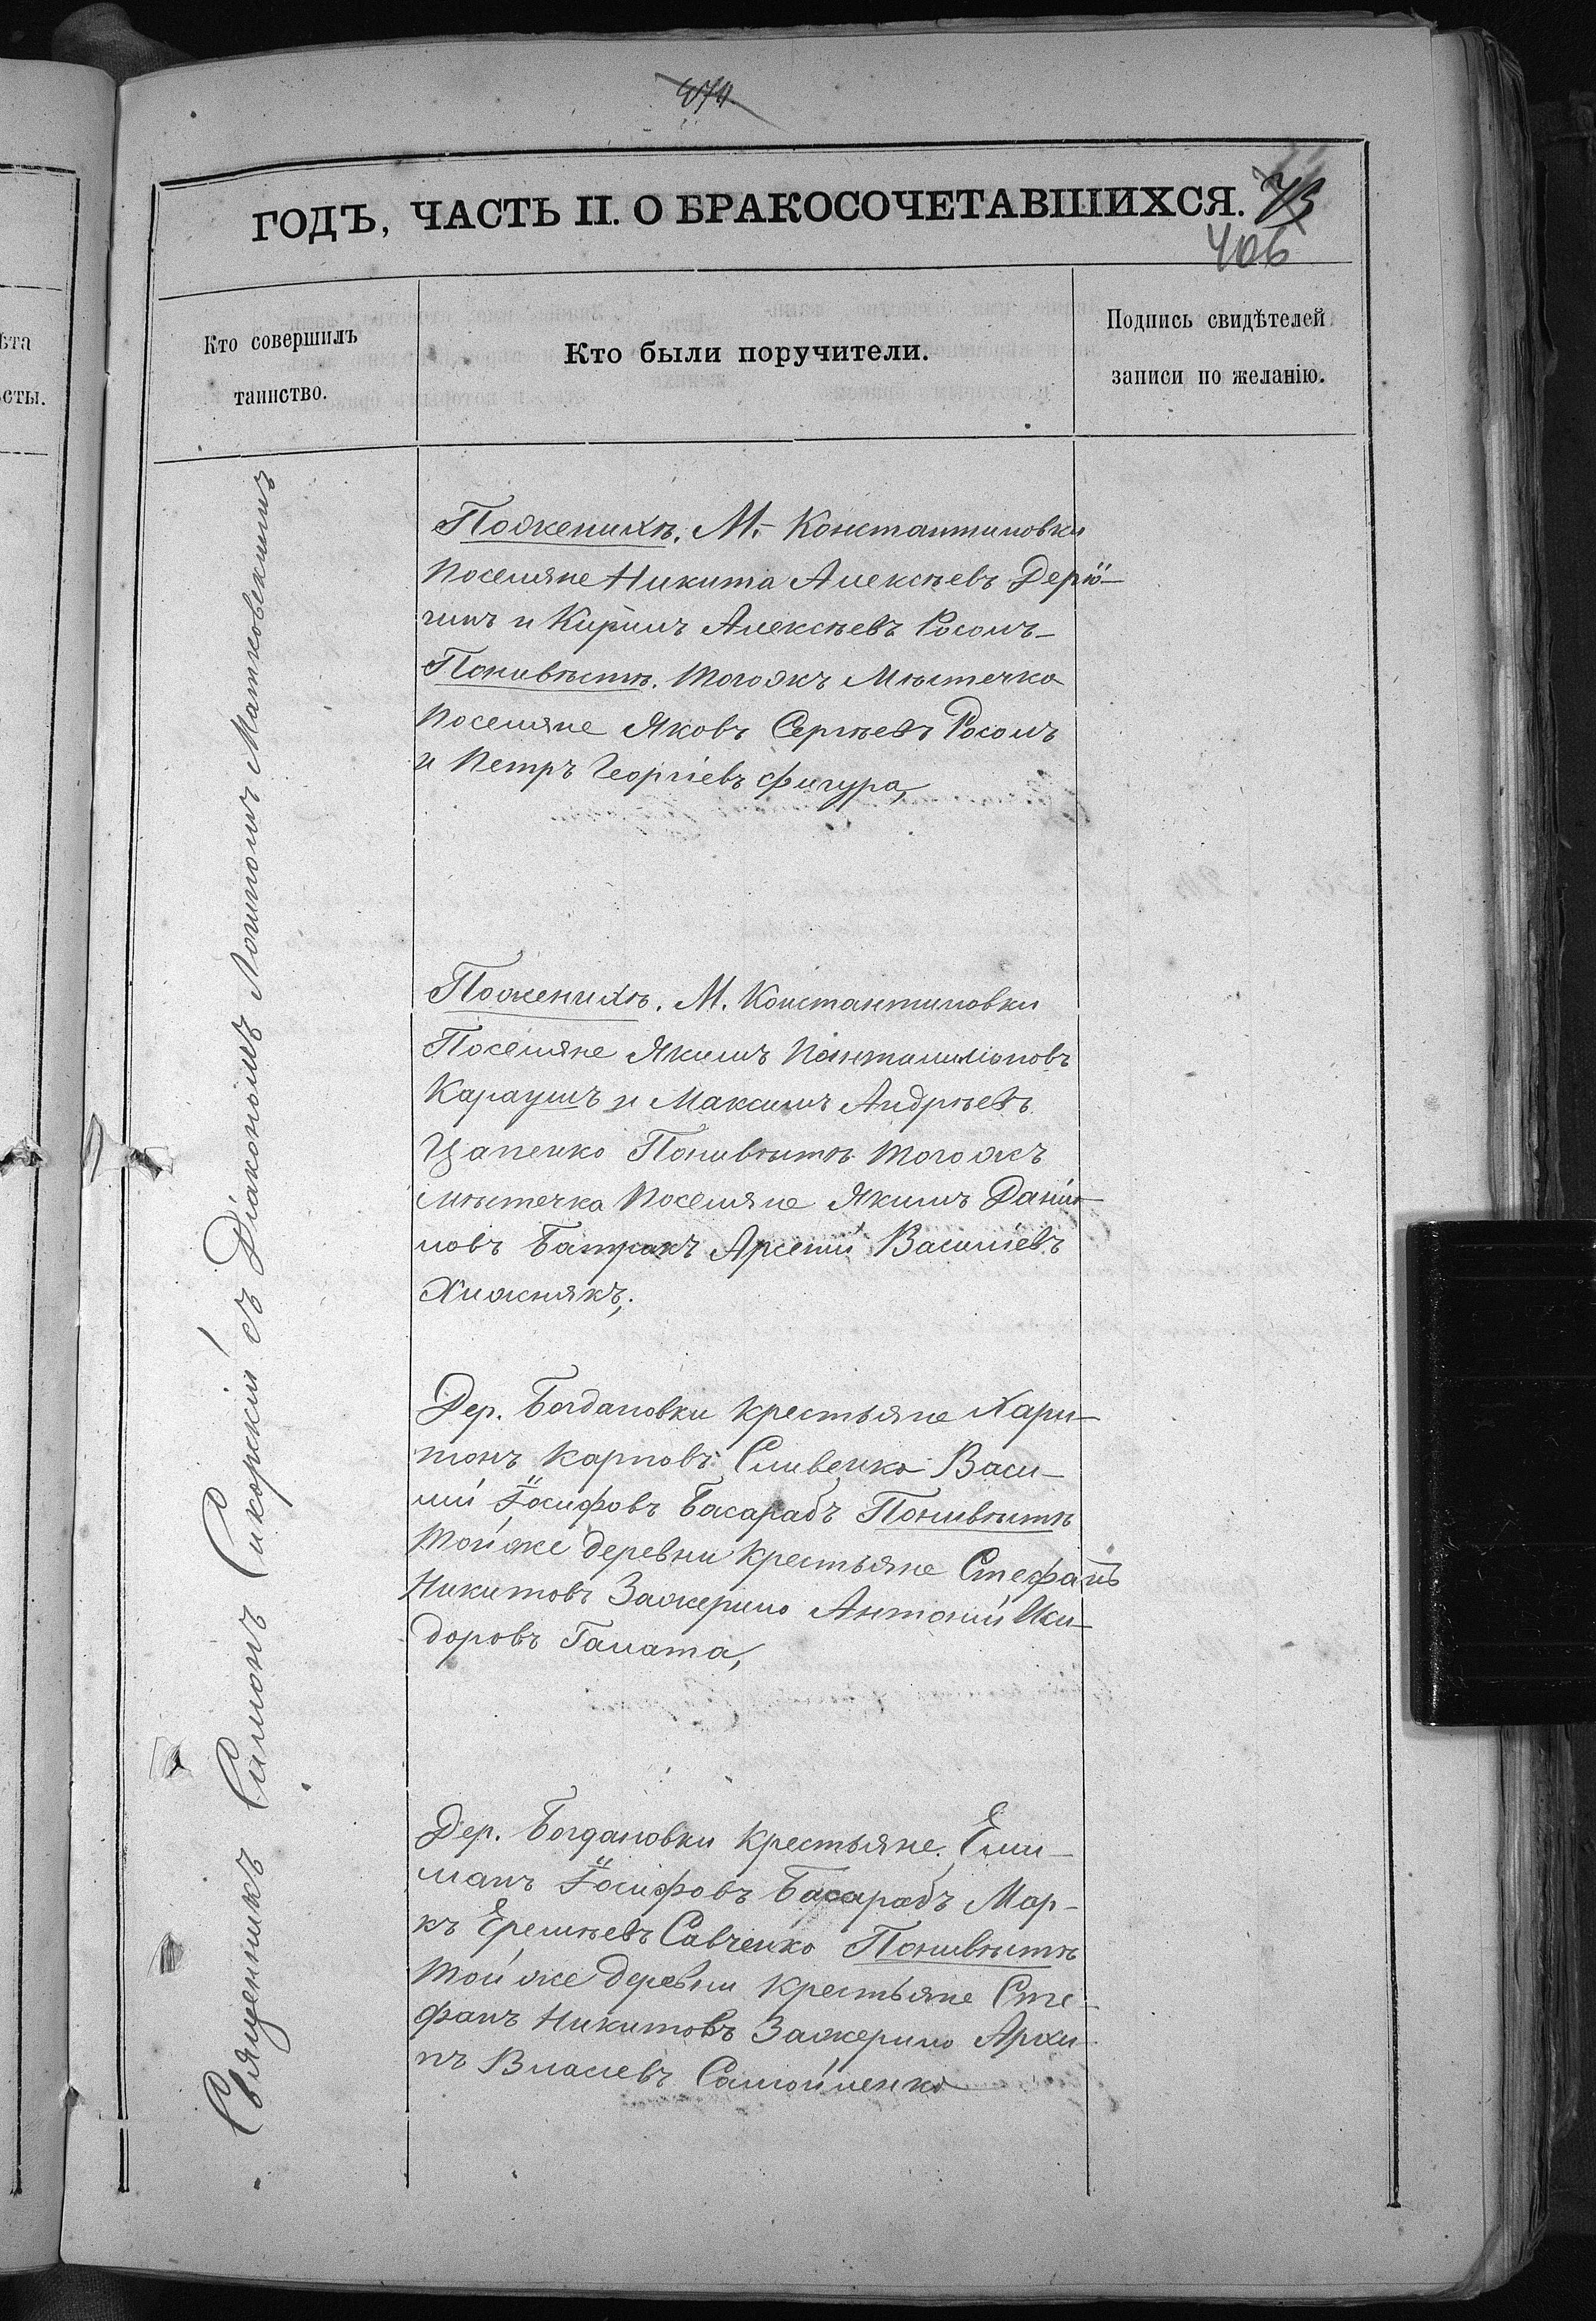 ГОДЪ, ЧАСТЬ II. О БРАКОСОЧЕТАВШИХСЯ.
406
Кто совершилъ
таинство.
Кто были поручители.
Подпись свидѣтелей
записи по желанію.
Священникъ Симонъ Сикорскій съ Діакономъ Логиномъ Матковскимъ
Поженихѣ. М. Константиновки
поселяне Никита Алексѣевъ Дерю-
гинъ и Кирилъ Алексѣевъ Росолъ
Понивѣстѣ. Тогожъ Мѣстечка
поселяне Яковъ Сергѣевъ Росолъ
и Петръ Георгіевъ Фигура,
Поженихѣ. М. Константиновки
Поселяне Якимъ Панталимоновъ
Караушъ и Максимъ Андрѣевъ
Цапенко Понивѣстѣ Тогожъ
мѣстечка поселяне Якимъ Дани-
ловъ Батракъ Арсеній Василіевъ
Хижнякъ,
Дер. Богдановки крестьяне Хари-
тонъ Карповъ Сливенко Васи-
лій Іосифовъ Басарабъ Понивѣстѣ
Той же деревни крестьяне Стефанъ
Никитовъ Зажерило Антоній Иси-
доровъ Галата,
Дер. Богдановки крестьяне. Еми-
лianъ Іосифовъ Басарабъ Мар-
къ Еремѣевъ Савченко Понивѣстѣ
Той же деревни крестьяне Сте-
фанъ Никитовъ Зажерило Архи-
пъ Власіевъ Самойленко
ѣта
ѣсты.